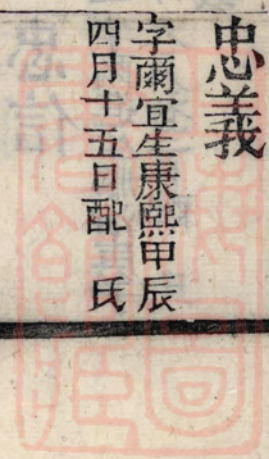 忠義
字爾宜生康熙甲辰
四月十五日配　氏